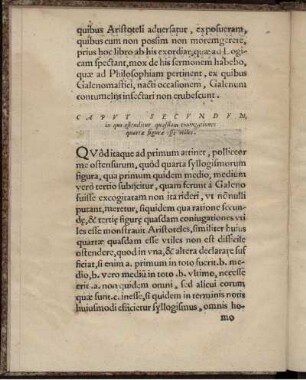 quibus Aristoteli aduersatur, exposueram,
quibus cum non possim non moremgerere,
prius hoc libro ab his exordiar, quæ ad Logi-
cam spectant, mox de his sermonem habebo,
quæ ad Philosophiam pertinent, ex quibus
Galenomastici, nacti occasionem, Galenum
contumelijs insectari non erubescunt.
CAPVT SECVNDVM,
in quo ostenditur quasdam coniugationes
quartæ figuræ esse vtiles.
QVôd itaque ad primum attinet, polliceor
me ostensurum, quòd quarta syllogismorum
figura, qua primum quidem medio, medium
verò tertio subijcitur, quam ferunt à Galeno
fuisse excogitatam non ita rideri, vt nõnulli
putant, meretur, siquidem qua ratione secun-
dę, & tertię figurę quasdam coniugationes vti
les esse monstrauit Aristoteles, similiter huius
quartæ quasdam esse vtiles non est difficile
ostendere, quod in vna, & altera declarare suf
ficiat, si enim a. primum in toto fuerit. b. me-
dio, b. vero mediũ in toto .b. vltimo, necesse
erit .a. non quidem omni, sed alicui eorum
quæ sunt .c. inesse, si quidem in terminis notis
huiusmodi efficietur syllogismus, omnis ho-
mo